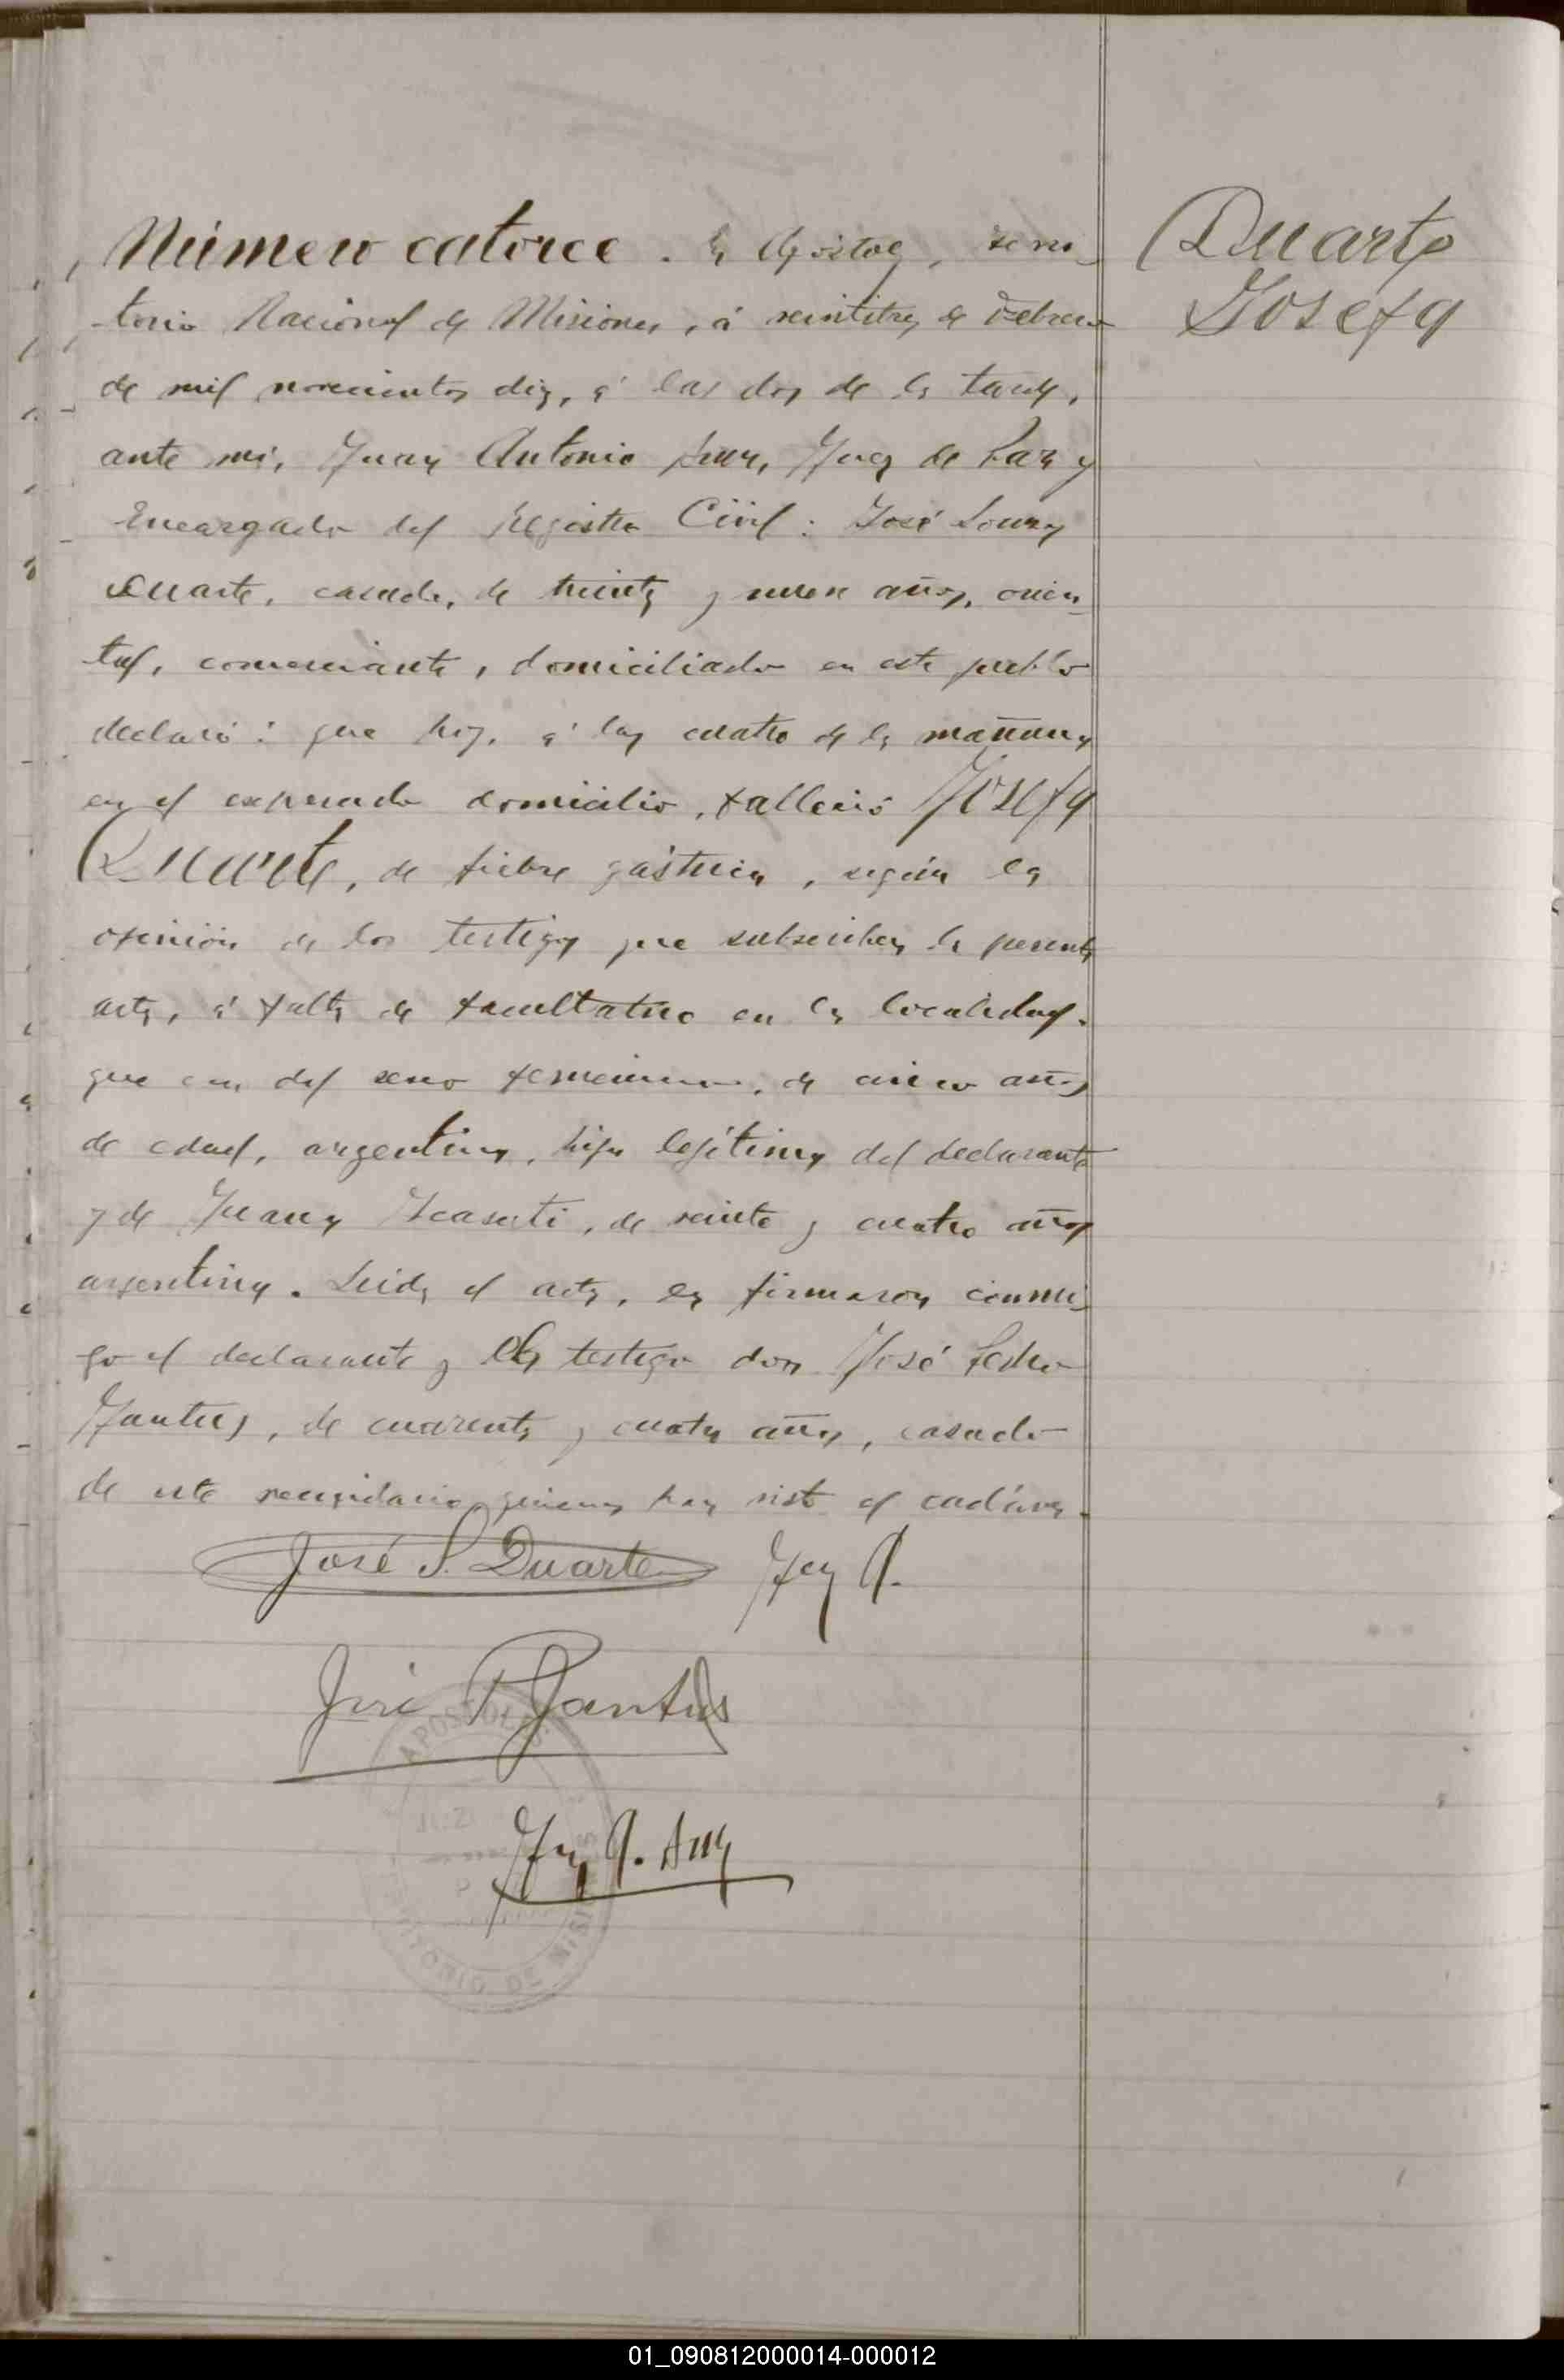 Número catorce. En Apóstoles, terri-
torio Nacional de Misiones, á veintitres de Febrero
de mil novecientos diez, á las dos de la tarde,
ante mi, Juan Antonio Juez de Paz y
Encargado del Registro Civil: José
Duarte, casado, de treinta y nueve años, orien-
tal, comerciante, domiciliado en este pueblo
declaró: que hoy, á las cuatro de la mañana
en el expresado domicilio, falleció Josefa
Duarte, de fiebre gástrica, según la
opinión de los testigos que subscriben la presente
acta, á falta de facultativo en la localidad.
que era del sexo femenino, de cinco años
de edad, argentina, hija legítima del declarante
y de Juana de veinte y cuatro años
argentina. Leida el acta, la firmaron conmi-
go el declarante y el testigo don José Pedro
de cuarenta y cuatro años, casado
de este vecindario, quienes han visto el cadáver.
José S. Duarte
José P.
APOSTOLES
JUZ
P
TERRITORIO DE MISIONES
Duarte
Josefa
01_090812000014-000012